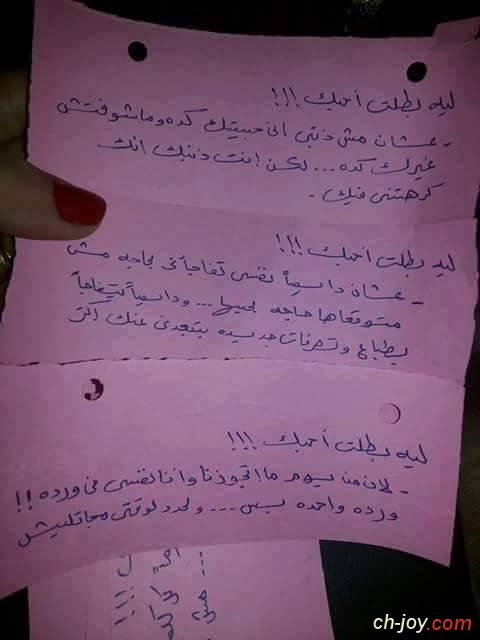 ليه بطلت أحبك !!!
- عشان مش ذنبى انى حبيتك كده وماشوفتش
غيرك كده ... لكن انت ذنبك انك
كرهتنى فيك .
ليه بطلت أحبك !!!
- عشان دايماً نفسى تفاجأنى بحاجه مش
متوقعاها حاجه بحبها ... ودايماً بتفاجأ
بطباع وتصرفات جديده بتبعدنى عنك اكتر
ليه بطلت أحبك !!!
- لان من يوم ما اتجوزنا وانا نفسى فى ورده !!
ورده واحده بس ... ولحد دلوقتى مجاتليش
ch-joy.com